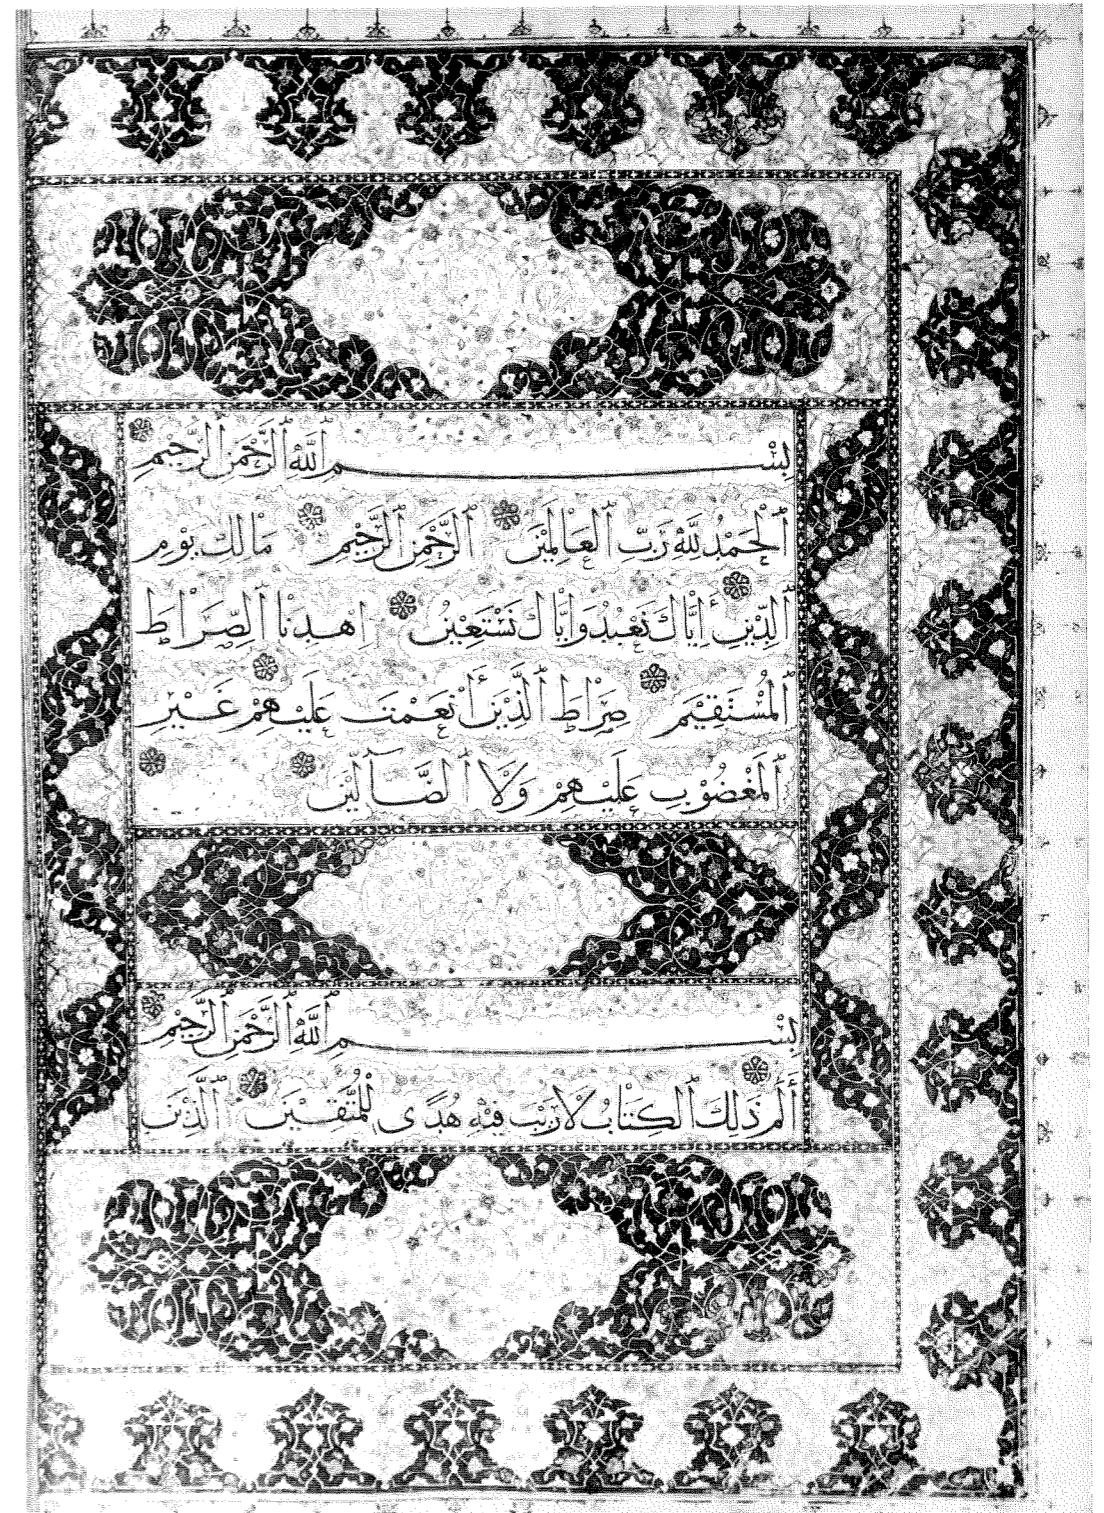 بِسْمِ ٱللَّهِ ٱلرَّحْمَنِ ٱلرَّحِيمِ
ٱلْحَمْدُ لِلَّهِ رَبِّ ٱلْعَالَمِيْنَ ٱلرَّحْمَنِ ٱلرَّحِيْمِ مَالِكِ يَوْمِ
ٱلدِّيْنِ إِيَّاكَ نَعْبُدُ وَإِيَّاكَ نَسْتَعِيْنُ اِهْدِنَا ٱلصِّرَاطَ
ٱلْمُسْتَقِيْمَ صِرَاطَ ٱلَّذِيْنَ أَنْعَمْتَ عَلَيْهِمْ غَيْرِ
ٱلْمَغْضُوْبِ عَلَيْهِمْ وَلَا ٱلضَّآلِّيْنَ
بِسْمِ ٱللَّهِ ٱلرَّحْمَنِ ٱلرَّحِيْمِ
أَلَمَ ذَلِكَ ٱلْكِتَابُ لَا رَيْبَ فِيْهِ هُدًى لِلْمُتَّقِيْنَ ٱلَّذِيْنَ